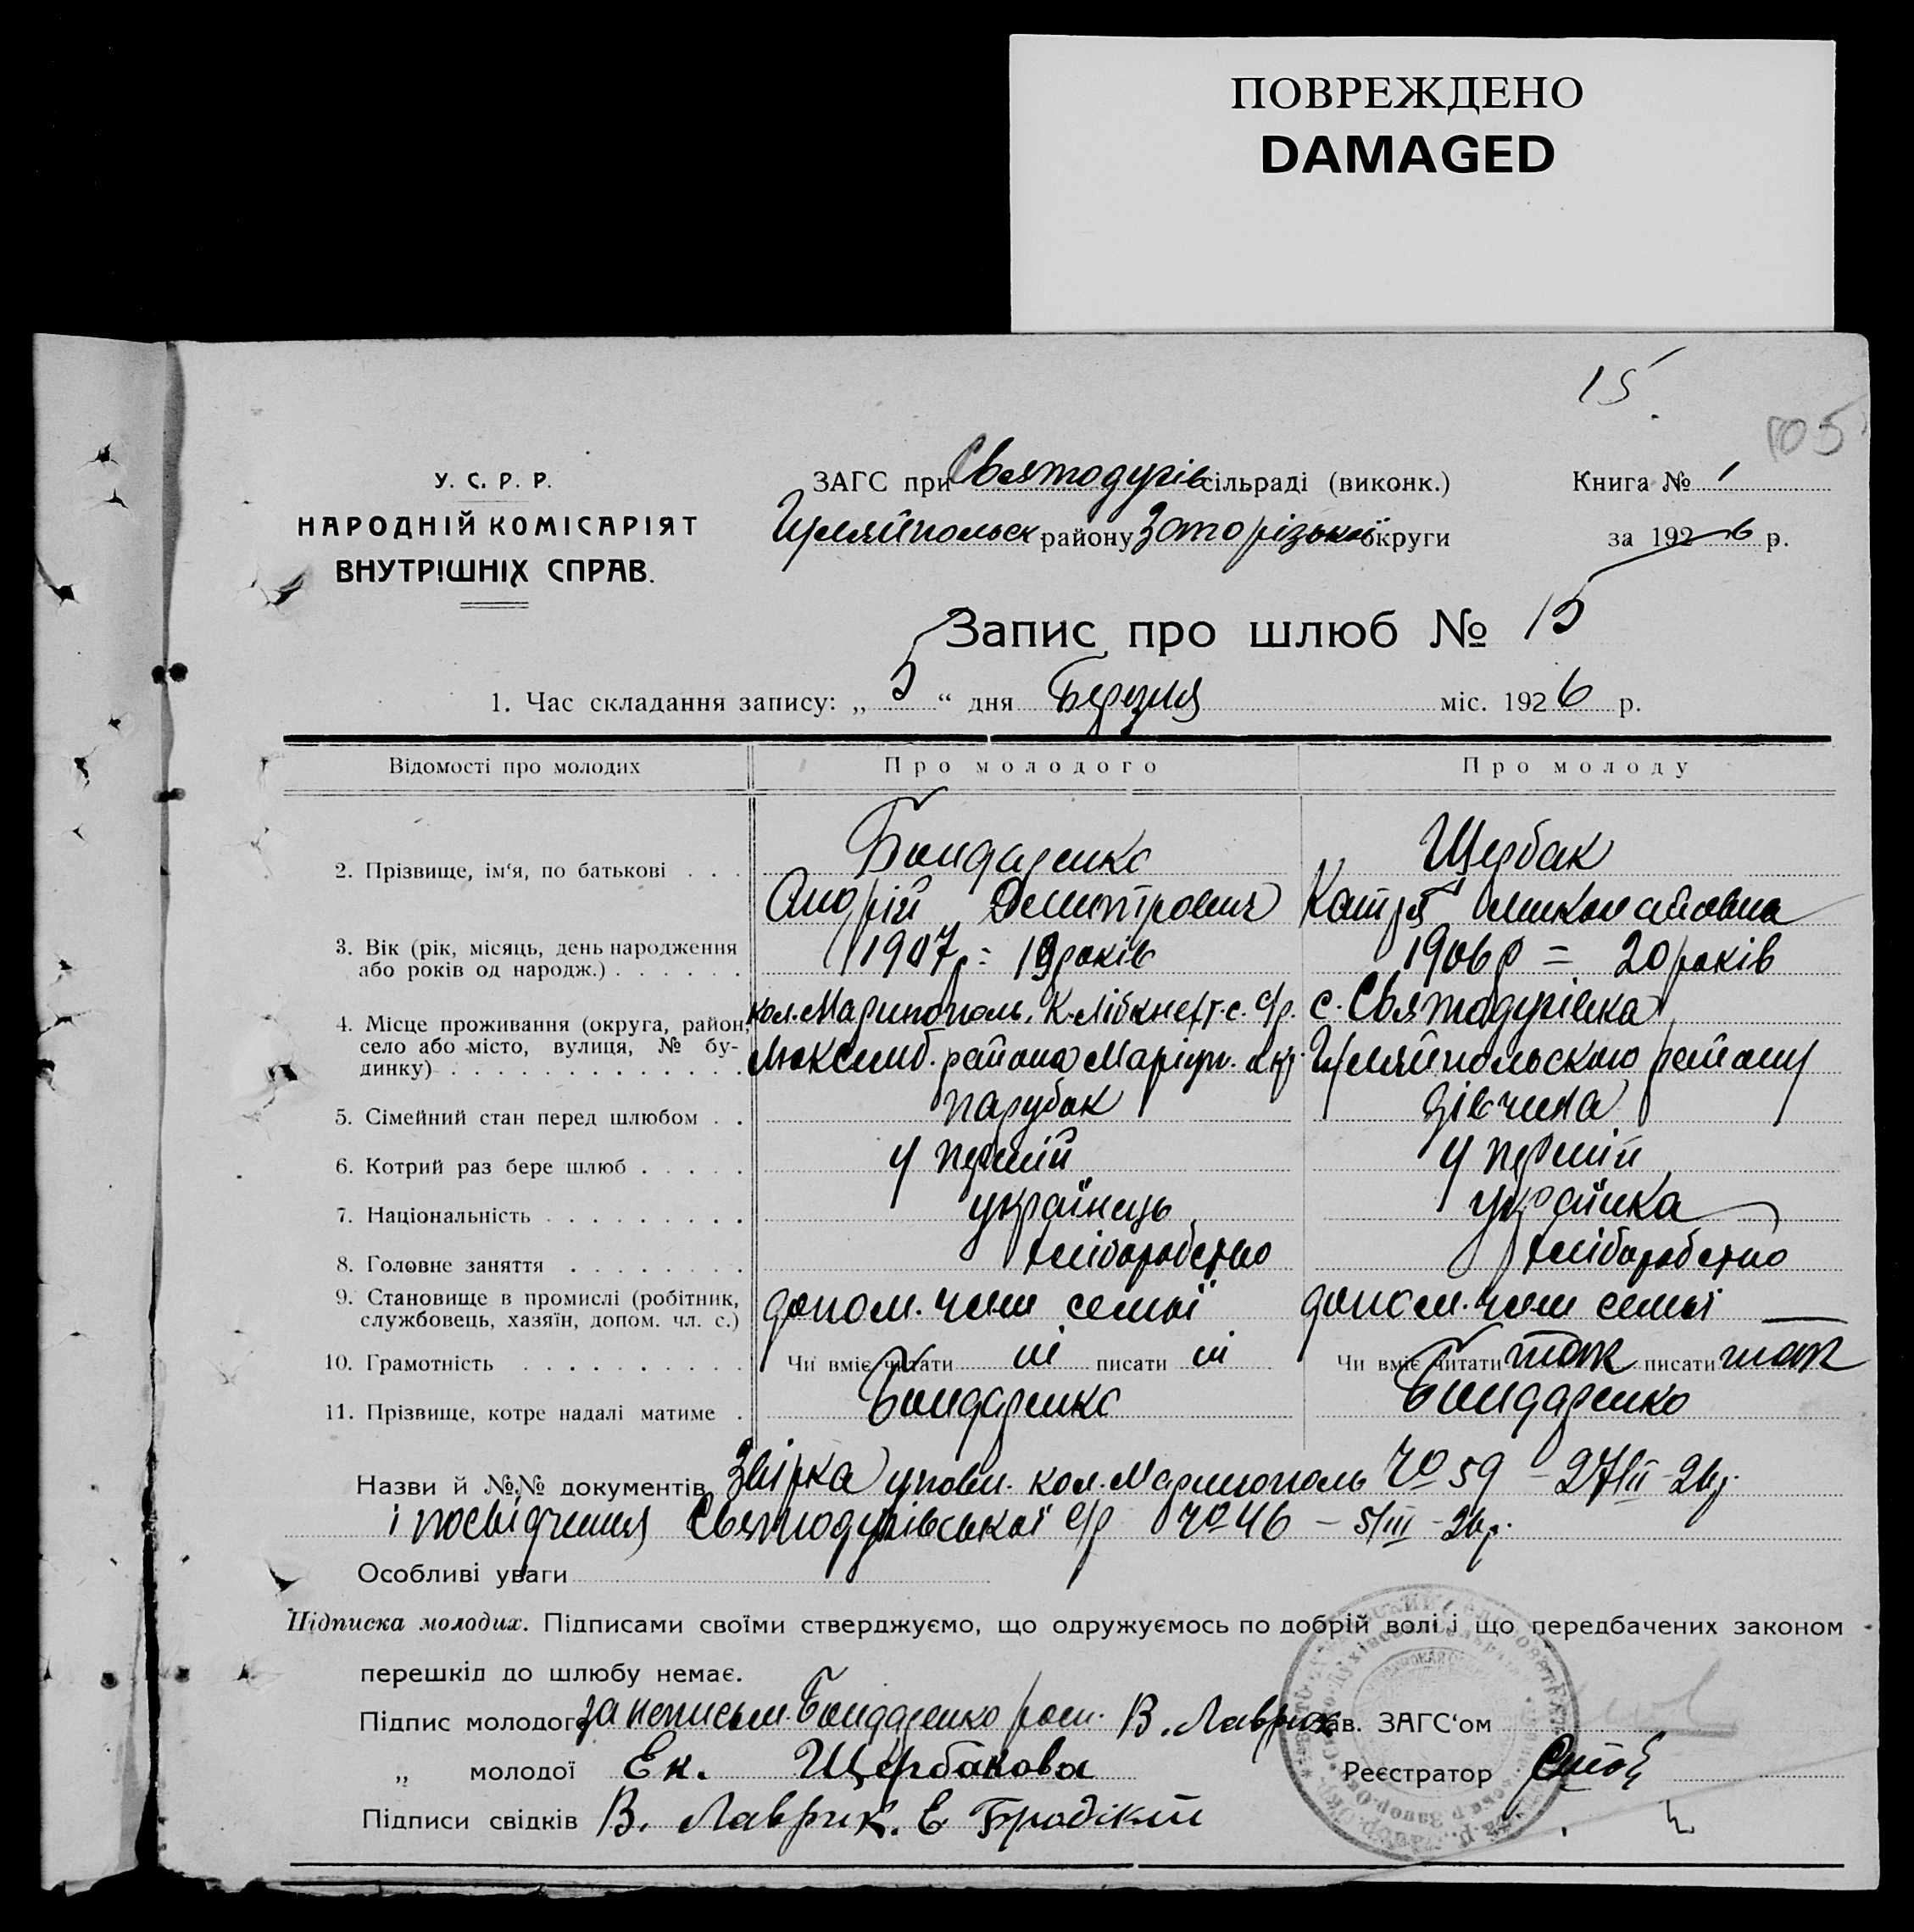 ПОВРЕЖДЕНО
DAMAGED
15.
105
У. С. Р. Р.
НАРОДНІЙ КОМІСАРІЯТ
ВНУТРІШНІХ СПРАВ.
ЗАГС при Святодухів сільраді (виконк.)
Гуляйпольск району Запорізької округи
Книга № 1
за 1926 р.
Запис про шлюб № 15
1. Час складання запису: „ 5 “ дня Березня міс. 1926 р.
Відомості про молодих
Про молодого
Про молоду
2. Прізвище, ім‘я, по батькові . . .
Бондаренко
Андрій Дмитрович
Щербак
Катря Миколаївна
3. Вік (рік, місяць, день народження
або років од народж.) . . . . . .
1907р = 19 років
1906р = 20 років
4. Місце проживання (округа, район,
село або місто, вулиця, № бу-
динку) . . . . . . . . . . . . .
кол. Маринополь, К. Лібкнехт. с. с/р.
Люксемб. району Маріуп. окр.
с. Святодухівка
Гуляйпольского району
5. Сімейний стан перед шлюбом . .
парубок
дівчина
6. Котрий раз бере шлюб . . . . .
у перший
у перший
7. Національність . . . . . . . . .
українець
українка
8. Головне заняття . . . . . . . .
хліборобство
хліборобство
9. Становище в промислі (робітник,
службовець, хазяїн, допом. чл. с.)
допом. член семьї
допом. член семьї
10. Грамотність . . . . . . . . . .
Чи вміє читати ні писати ні
Чи вміє читати так писати так
11. Прізвище, котре надалі матиме .
Бондаренко
Бондаренко
Назви й №№ документів Звірка уповн. кол. Маринополь № 59 – 27/II – 26р.
і посвідчення Святодухівської с/р № 46 – 5/III – 26р.
Особливі уваги
Підписка молодих. Підписами своїми стверджуємо, що одружуємось по добрій волі і що передбачених законом
перешкід до шлюбу немає.
Підпис молодого за неписьм. Бондаренко розп. В. Лаврик
Зав. ЗАГС‘ом
„ молодої Ек. Щербакова
Реєстратор
Підписи свідків В. Лаврик. Е